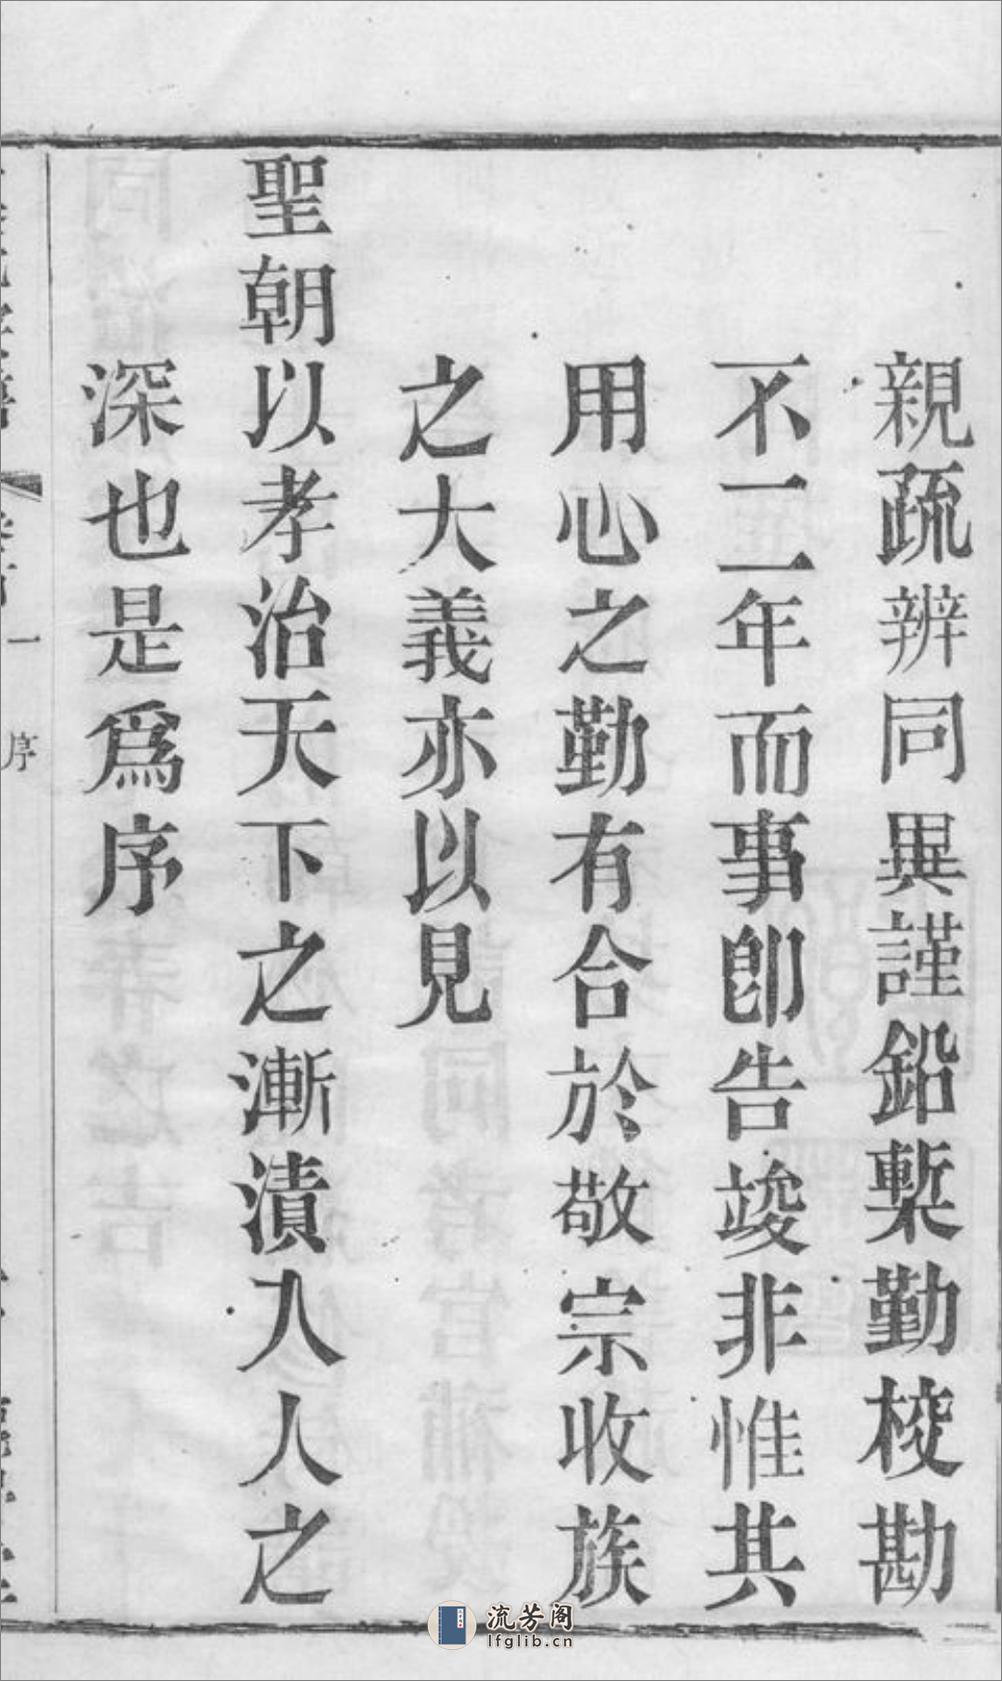 親疏辨同異謹鉛槧勤校勘
不二年而事卽告竣非惟其
用心之勤有合於敬宗收族
之大義亦以見
聖朝以孝治天下之漸漬入人之
深也是爲序
一
序
流芳阁
lfglib.cn